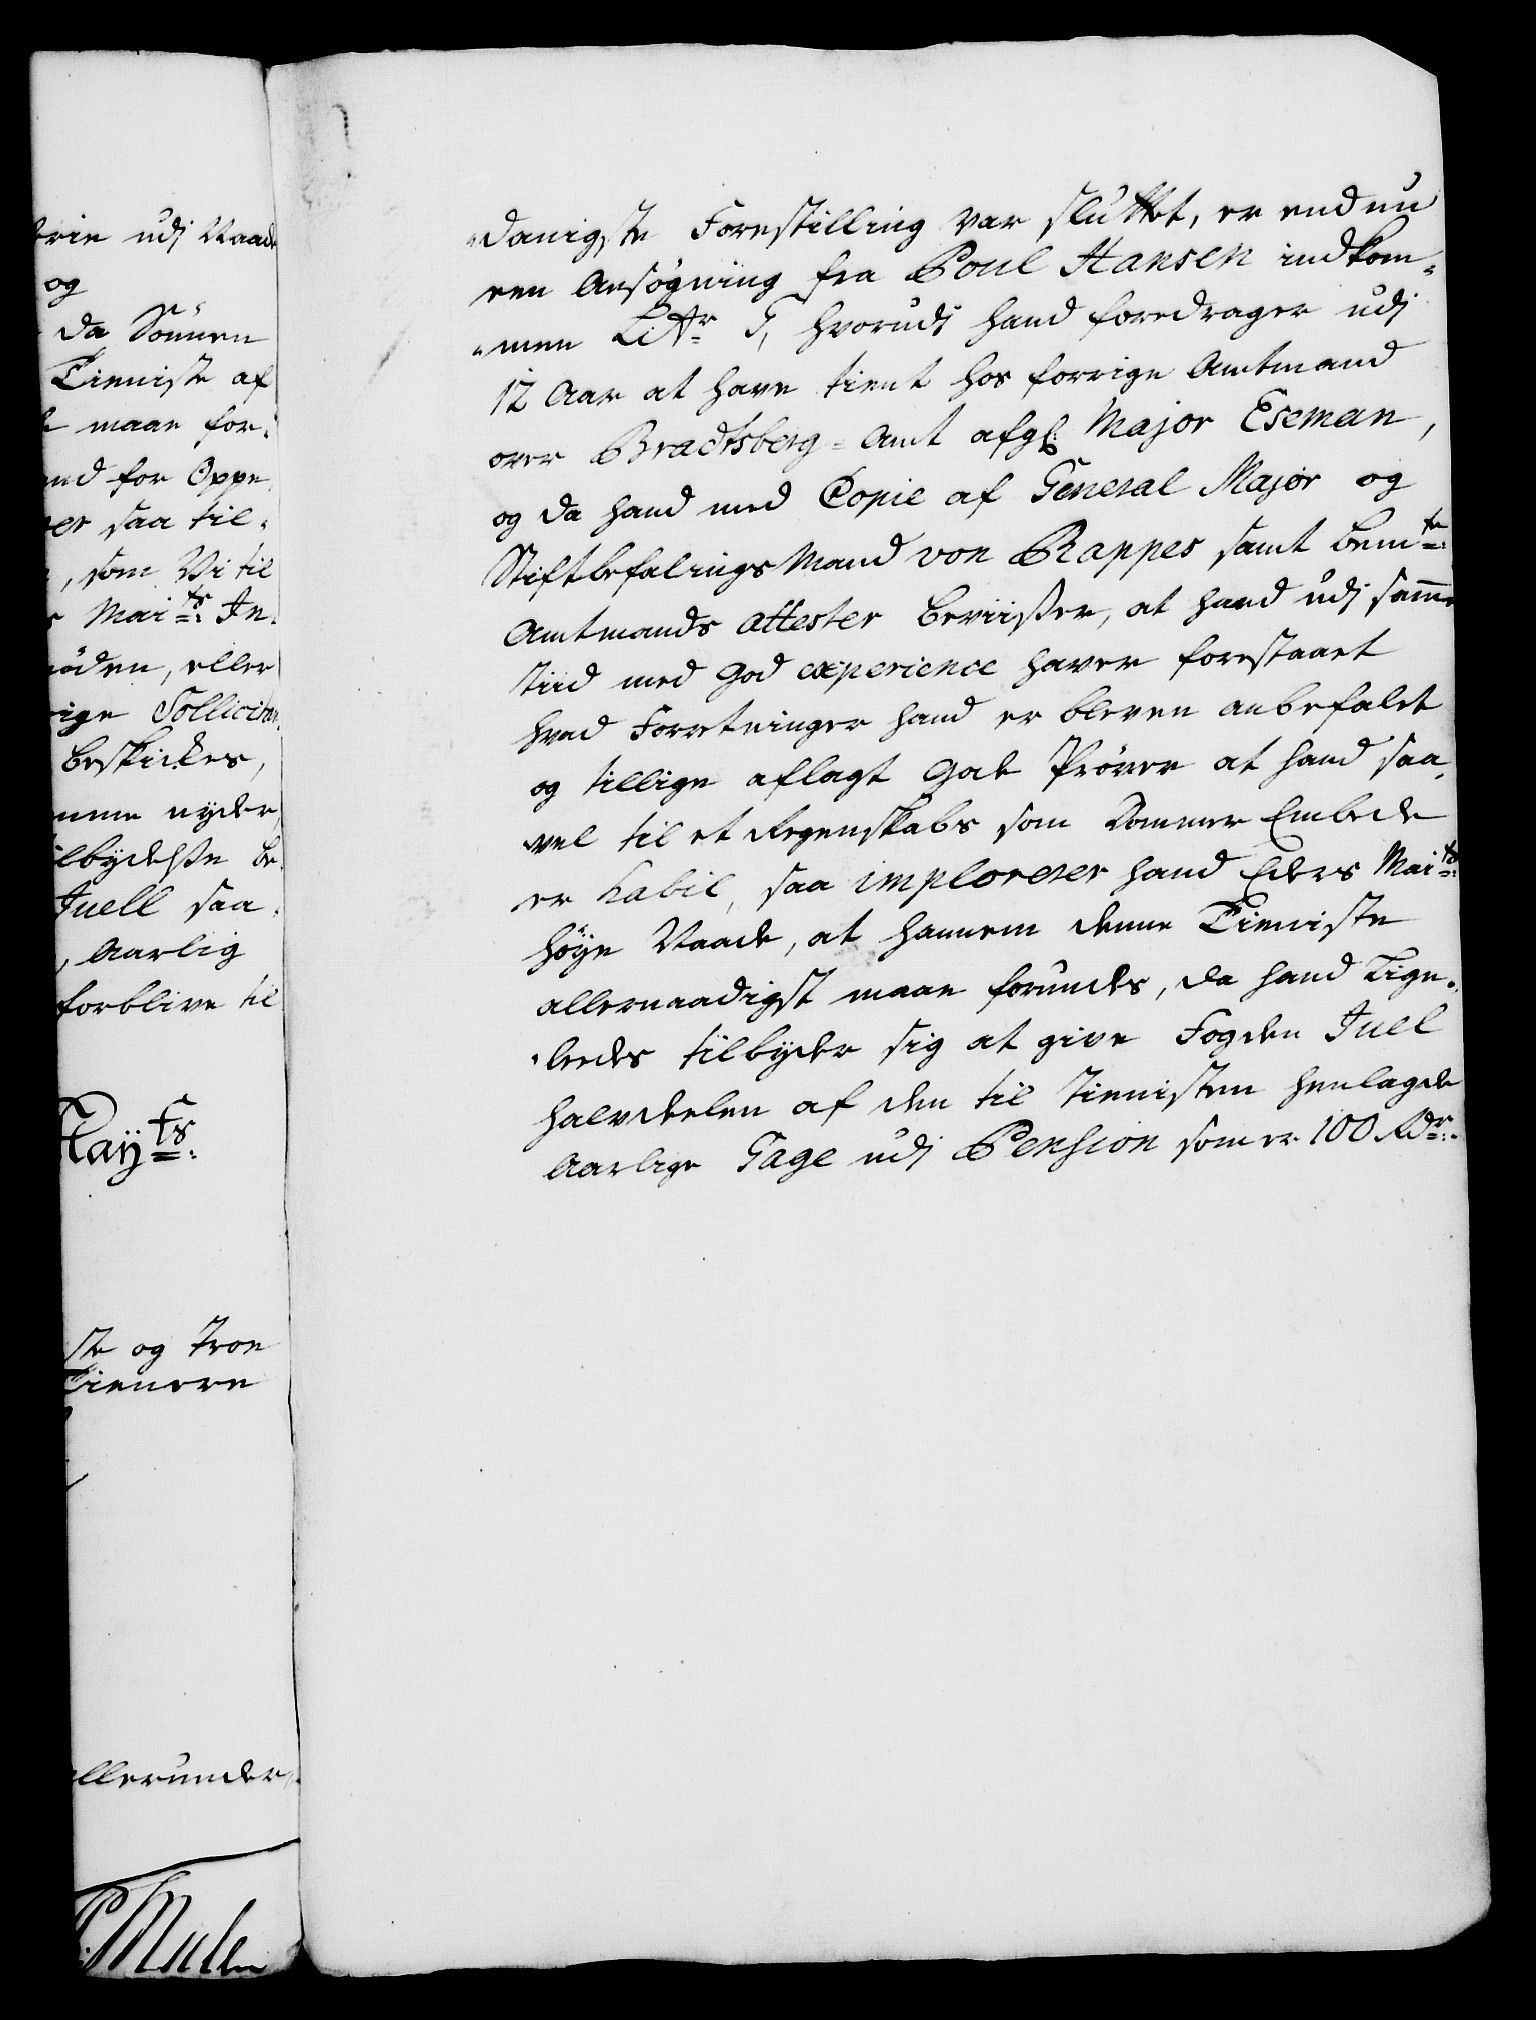 trie udj Naade
og
da Sönnen
Tieniste af
maae for-
end for Oppe
er saa til-
, som Vi til
Mai^ts: In-
öden, eller
ige Sollicitan
beskickes,
mme nyder
ilbydelse be-
Juell saa-
, Aarlig
forblive til
May^ts:
ste og Troe
Tienere
allerunder-
P Mule
danigste Forestilling var sluttet, er endnu
een Ansögning fra Poul Hansen indkom-
men Litr G, hvorudj hand foredrager udj
12 Aar at have tient hos forrige Amtmand
over Bradtsberg-Amt afgl: Major Eseman,
og da hand med Copie af General Major og
Stiftbefalings Mand von Rappes samt bem^te:
Amtmands attester beviiser, at hand udj samme
tiid med god experience haver forestaaet
hvad Forretninger hand er bleven anbefalet
og tillige aflagt gode Prøver at hand saa-
vel til et Regenskabs som Dommer Embede
er habil, saa imploreres hand Eders Mai^ts:
höye Naade, at hannem denne Tieniste
allernaadigst maae forundes, da hand Lige-
ledes tilbyder sig at give Fogden Juel
halvdeelen af den til Tienisten henlagde
Aarlige Gage udj Pension som er 100 Rdr: